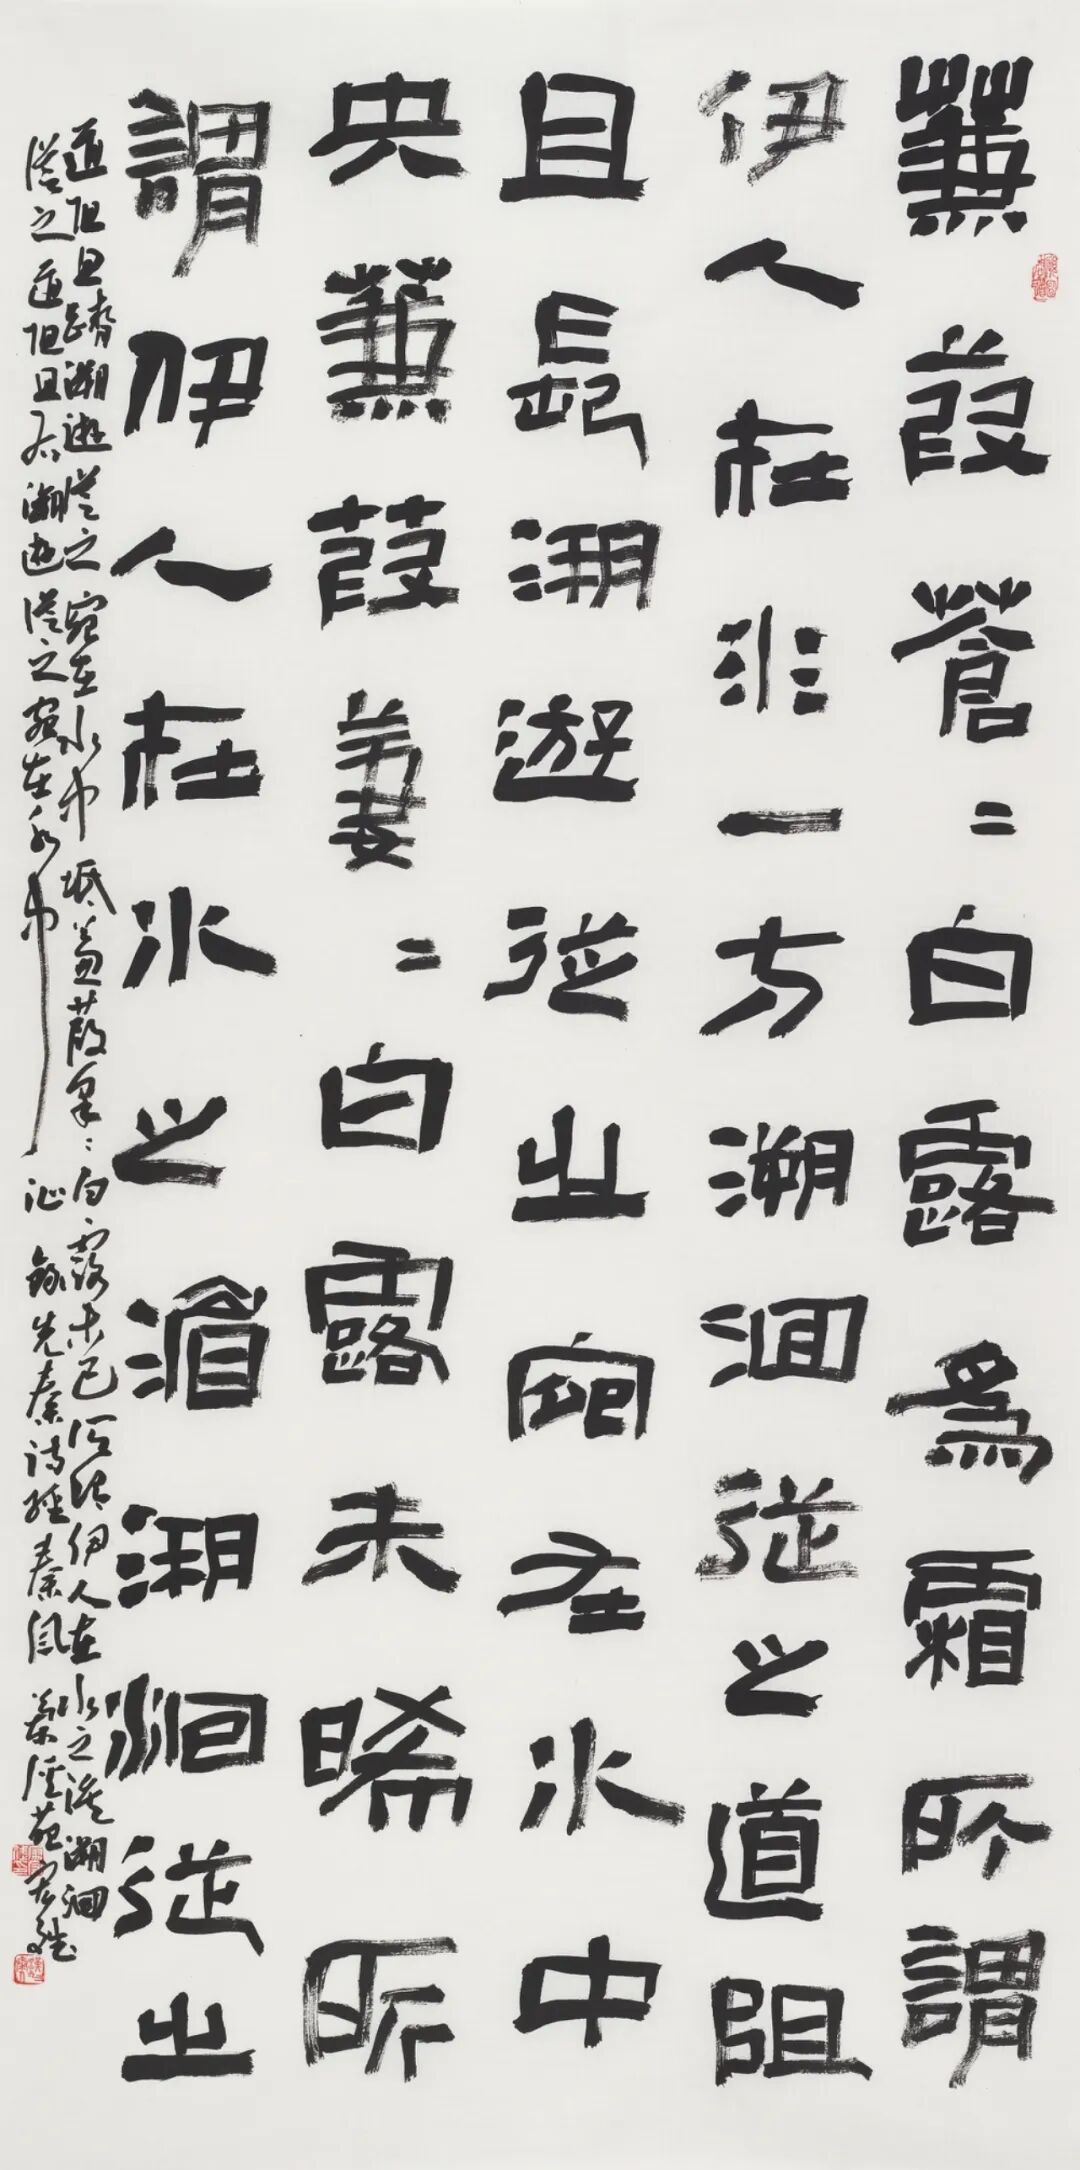 蒹葭蒼〻白露爲霜所謂
伊人在水一方溯洄從之道阻
且長溯遊從之宛在水中
央蒹葭萋〻白露未晞所
謂伊人在水之湄溯洄從之
道阻且躋溯遊從之宛在水中坻蒹葭采〻白露未已所謂伊人在水之涘溯洄
從之道阻且右溯遊從之宛在水中沚 錄先秦詩經秦風